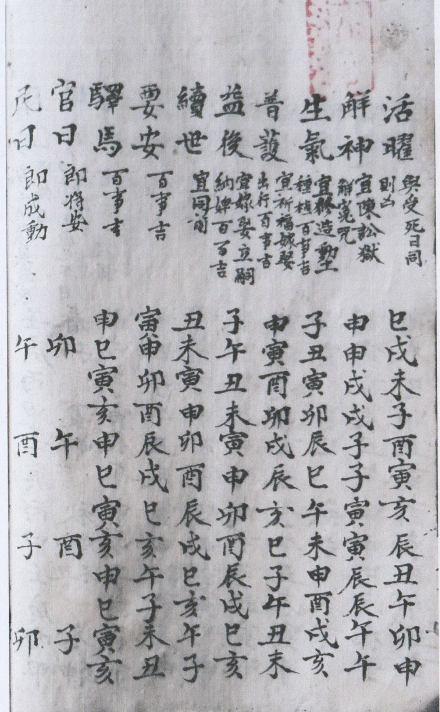 活曜 與受死日同則凶 巳戌未子酉寅亥辰丑午卯申
解神 宜陳訟獄解冤咒 申申戌戌子子寅寅辰辰午午
生氣 宜修造動土種植百事吉 子丑寅卯辰巳午未申酉戌亥
普護 宜祈福嫁娶出行百事吉 申寅酉卯戌辰亥巳子午丑未
益後 宜嫁娶立嗣納婢百百吉 子午丑未寅申卯酉辰戌巳亥
續世 宜同前 丑未寅申卯酉辰戌巳亥午子
要安 百事吉 寅申卯酉辰戌巳亥午子未丑
驛馬 百事吉 申巳寅亥申巳寅亥申巳寅亥
官日 即将安 卯午酉子
民日 即成動 午酉子卯